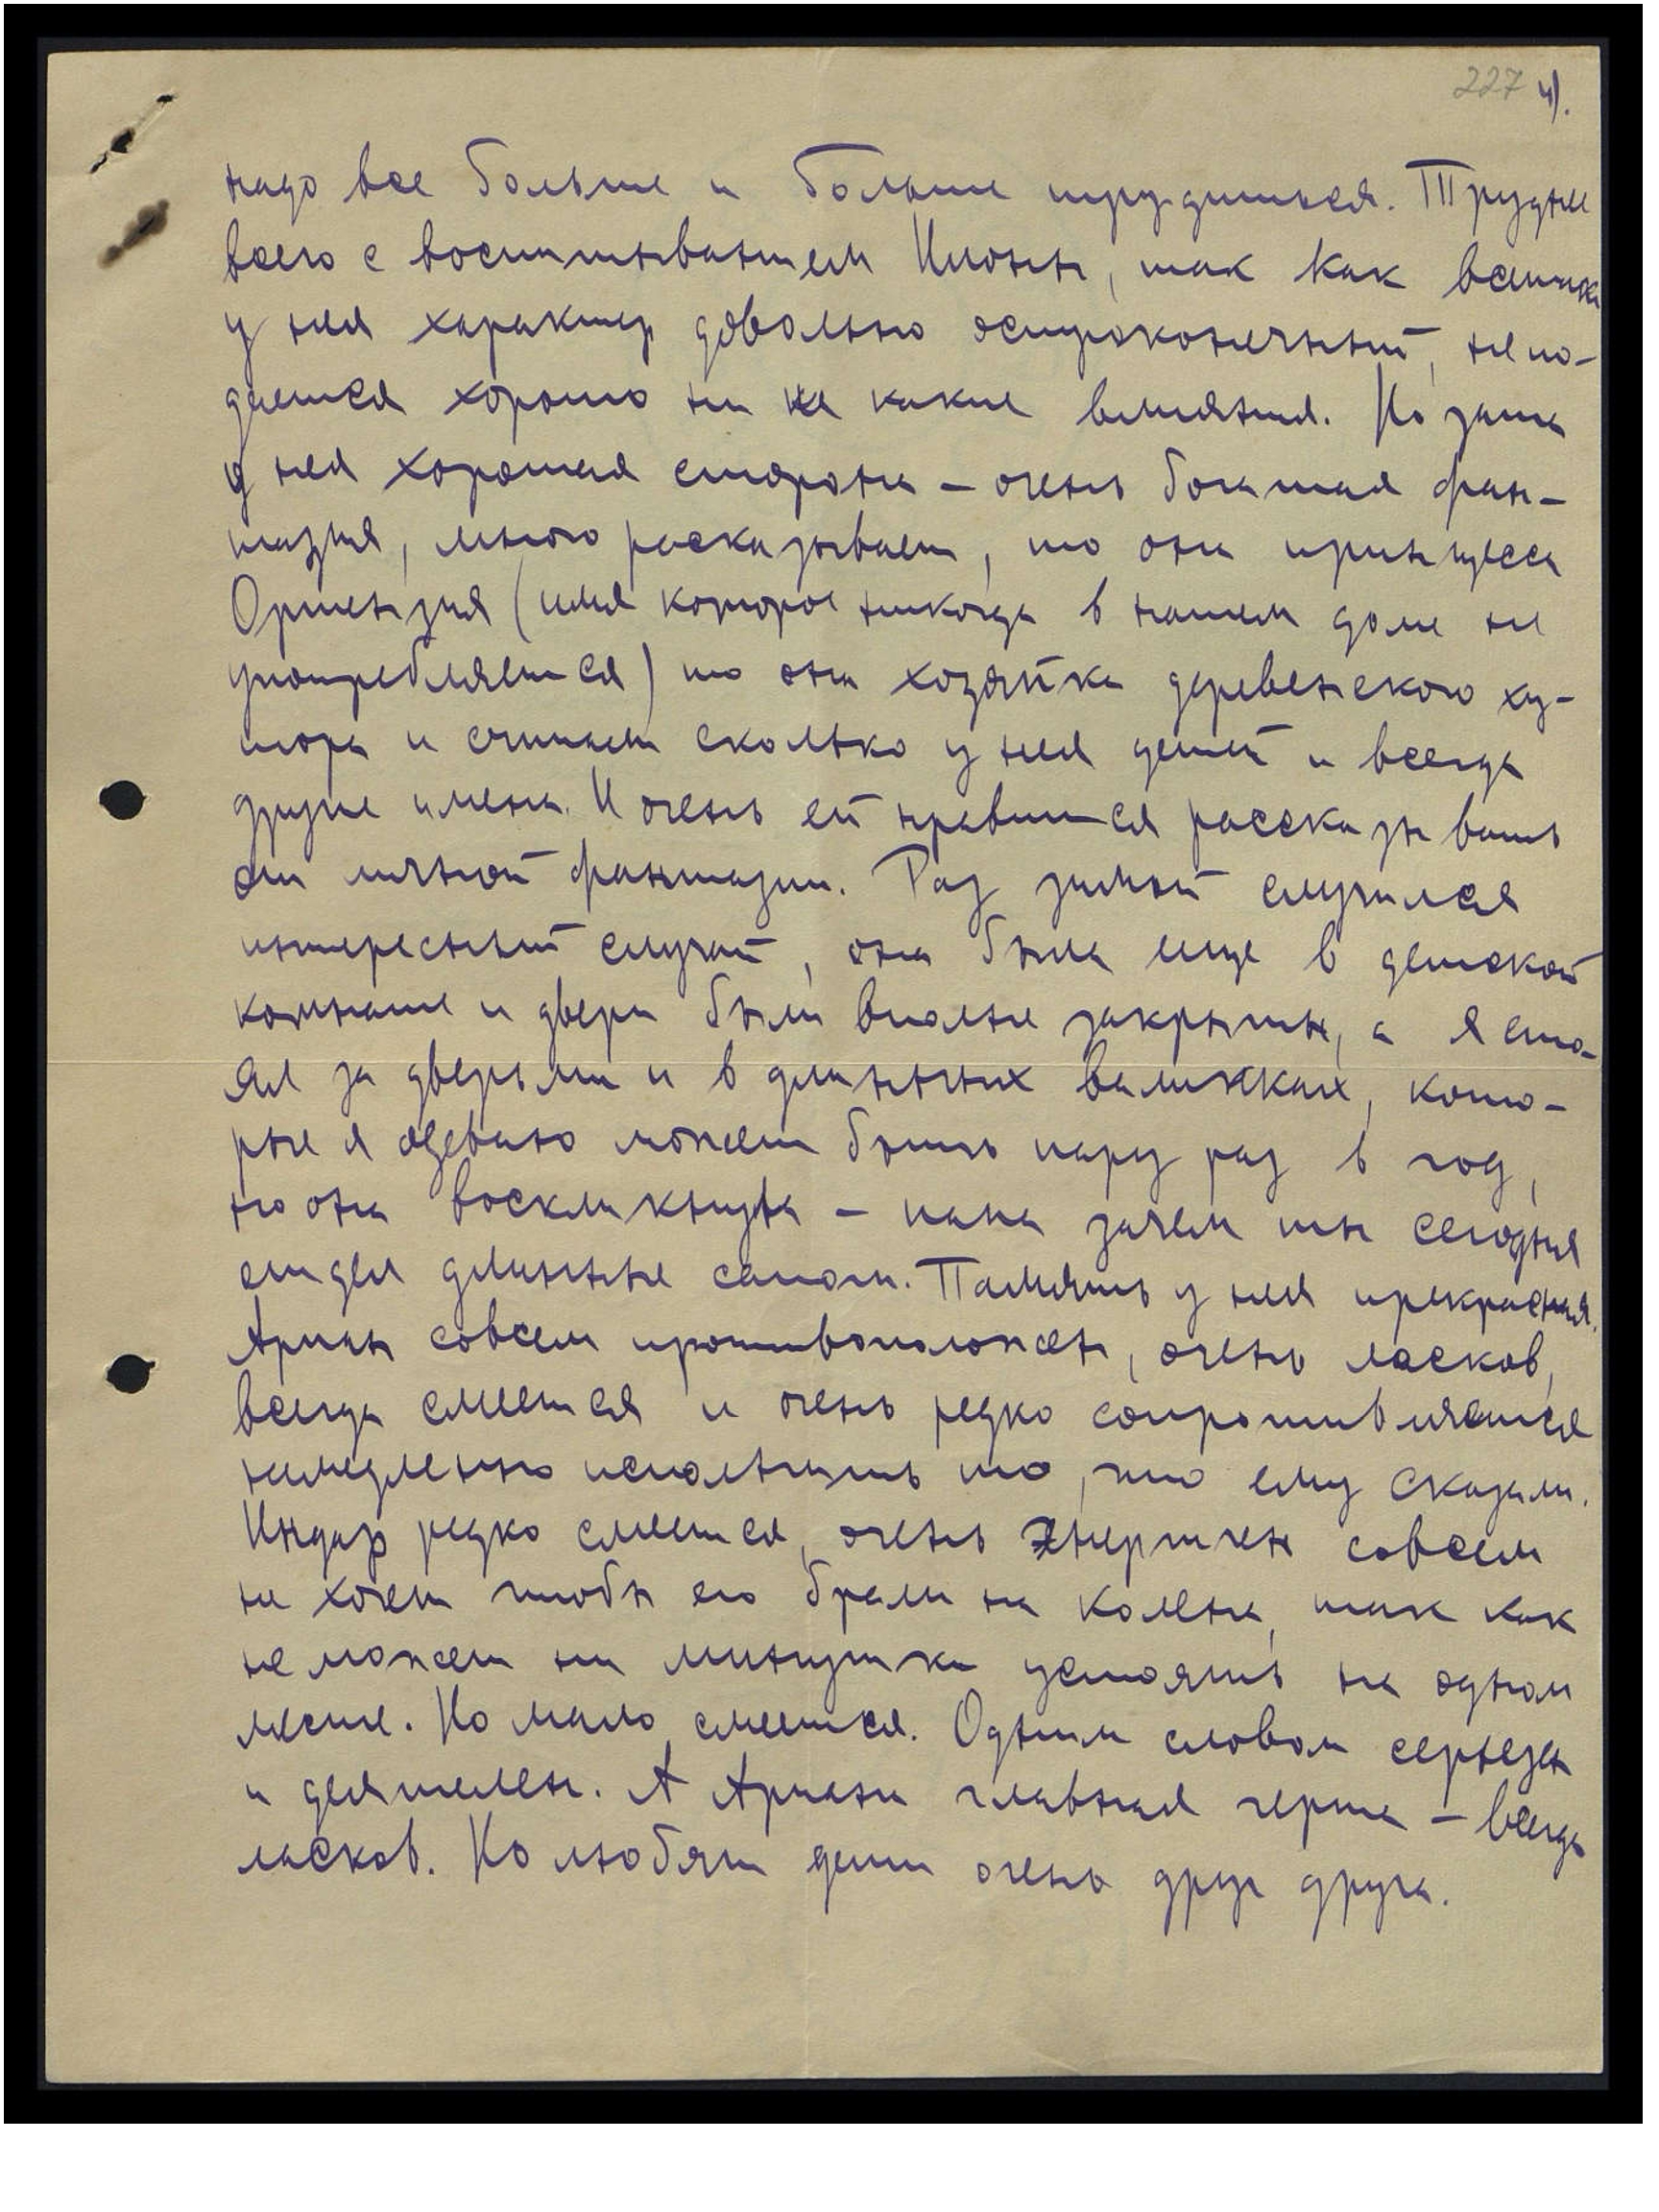 227 4).
надо все больше и больше трудиться. Труднее
всего с воспитыванием Илоны, так как все-таки
у нея характер довольно остроконечный, не по-
дается хорошо ни на какие влияния. Но зато
у нея хорошая сторона – очень богатая фан-
тазия, много расказывает, то она принцесса
Ортензия (имя которое никогда в нашем доме не
употребляется) то она хозяйка деревенского ху-
тора и считает сколько у нея детей и всегда
другие имена. И очень ей нравится рассказывать
от личной фантазии. Раз зимой случился
интересный случай, она была еще в детской
комнате и двери были вполне закрыты, а я сто-
ял за дверьми и в длинных валинках, кото-
рые я одеваю может быть пару раз в год,
но она воскликнула – папа зачем ты сегодня
отдел длинные сапоги. Память у нея прекрасная.
Ариан совсем противоположен, очень ласков,
всегда смеется и очень редко сопротивляется
немедленно исполнить то, что ему сказали.
Индар редко смеется, очень энергичен совсем
не хочет чтобы его брали на колена, так как
не может ни минутки устоять на одном
месте. Но мало смеется. Одним словом серьезен
и деятелен. А Ариана главная черта – всегда
ласков. Но любят дети очень друг друга.